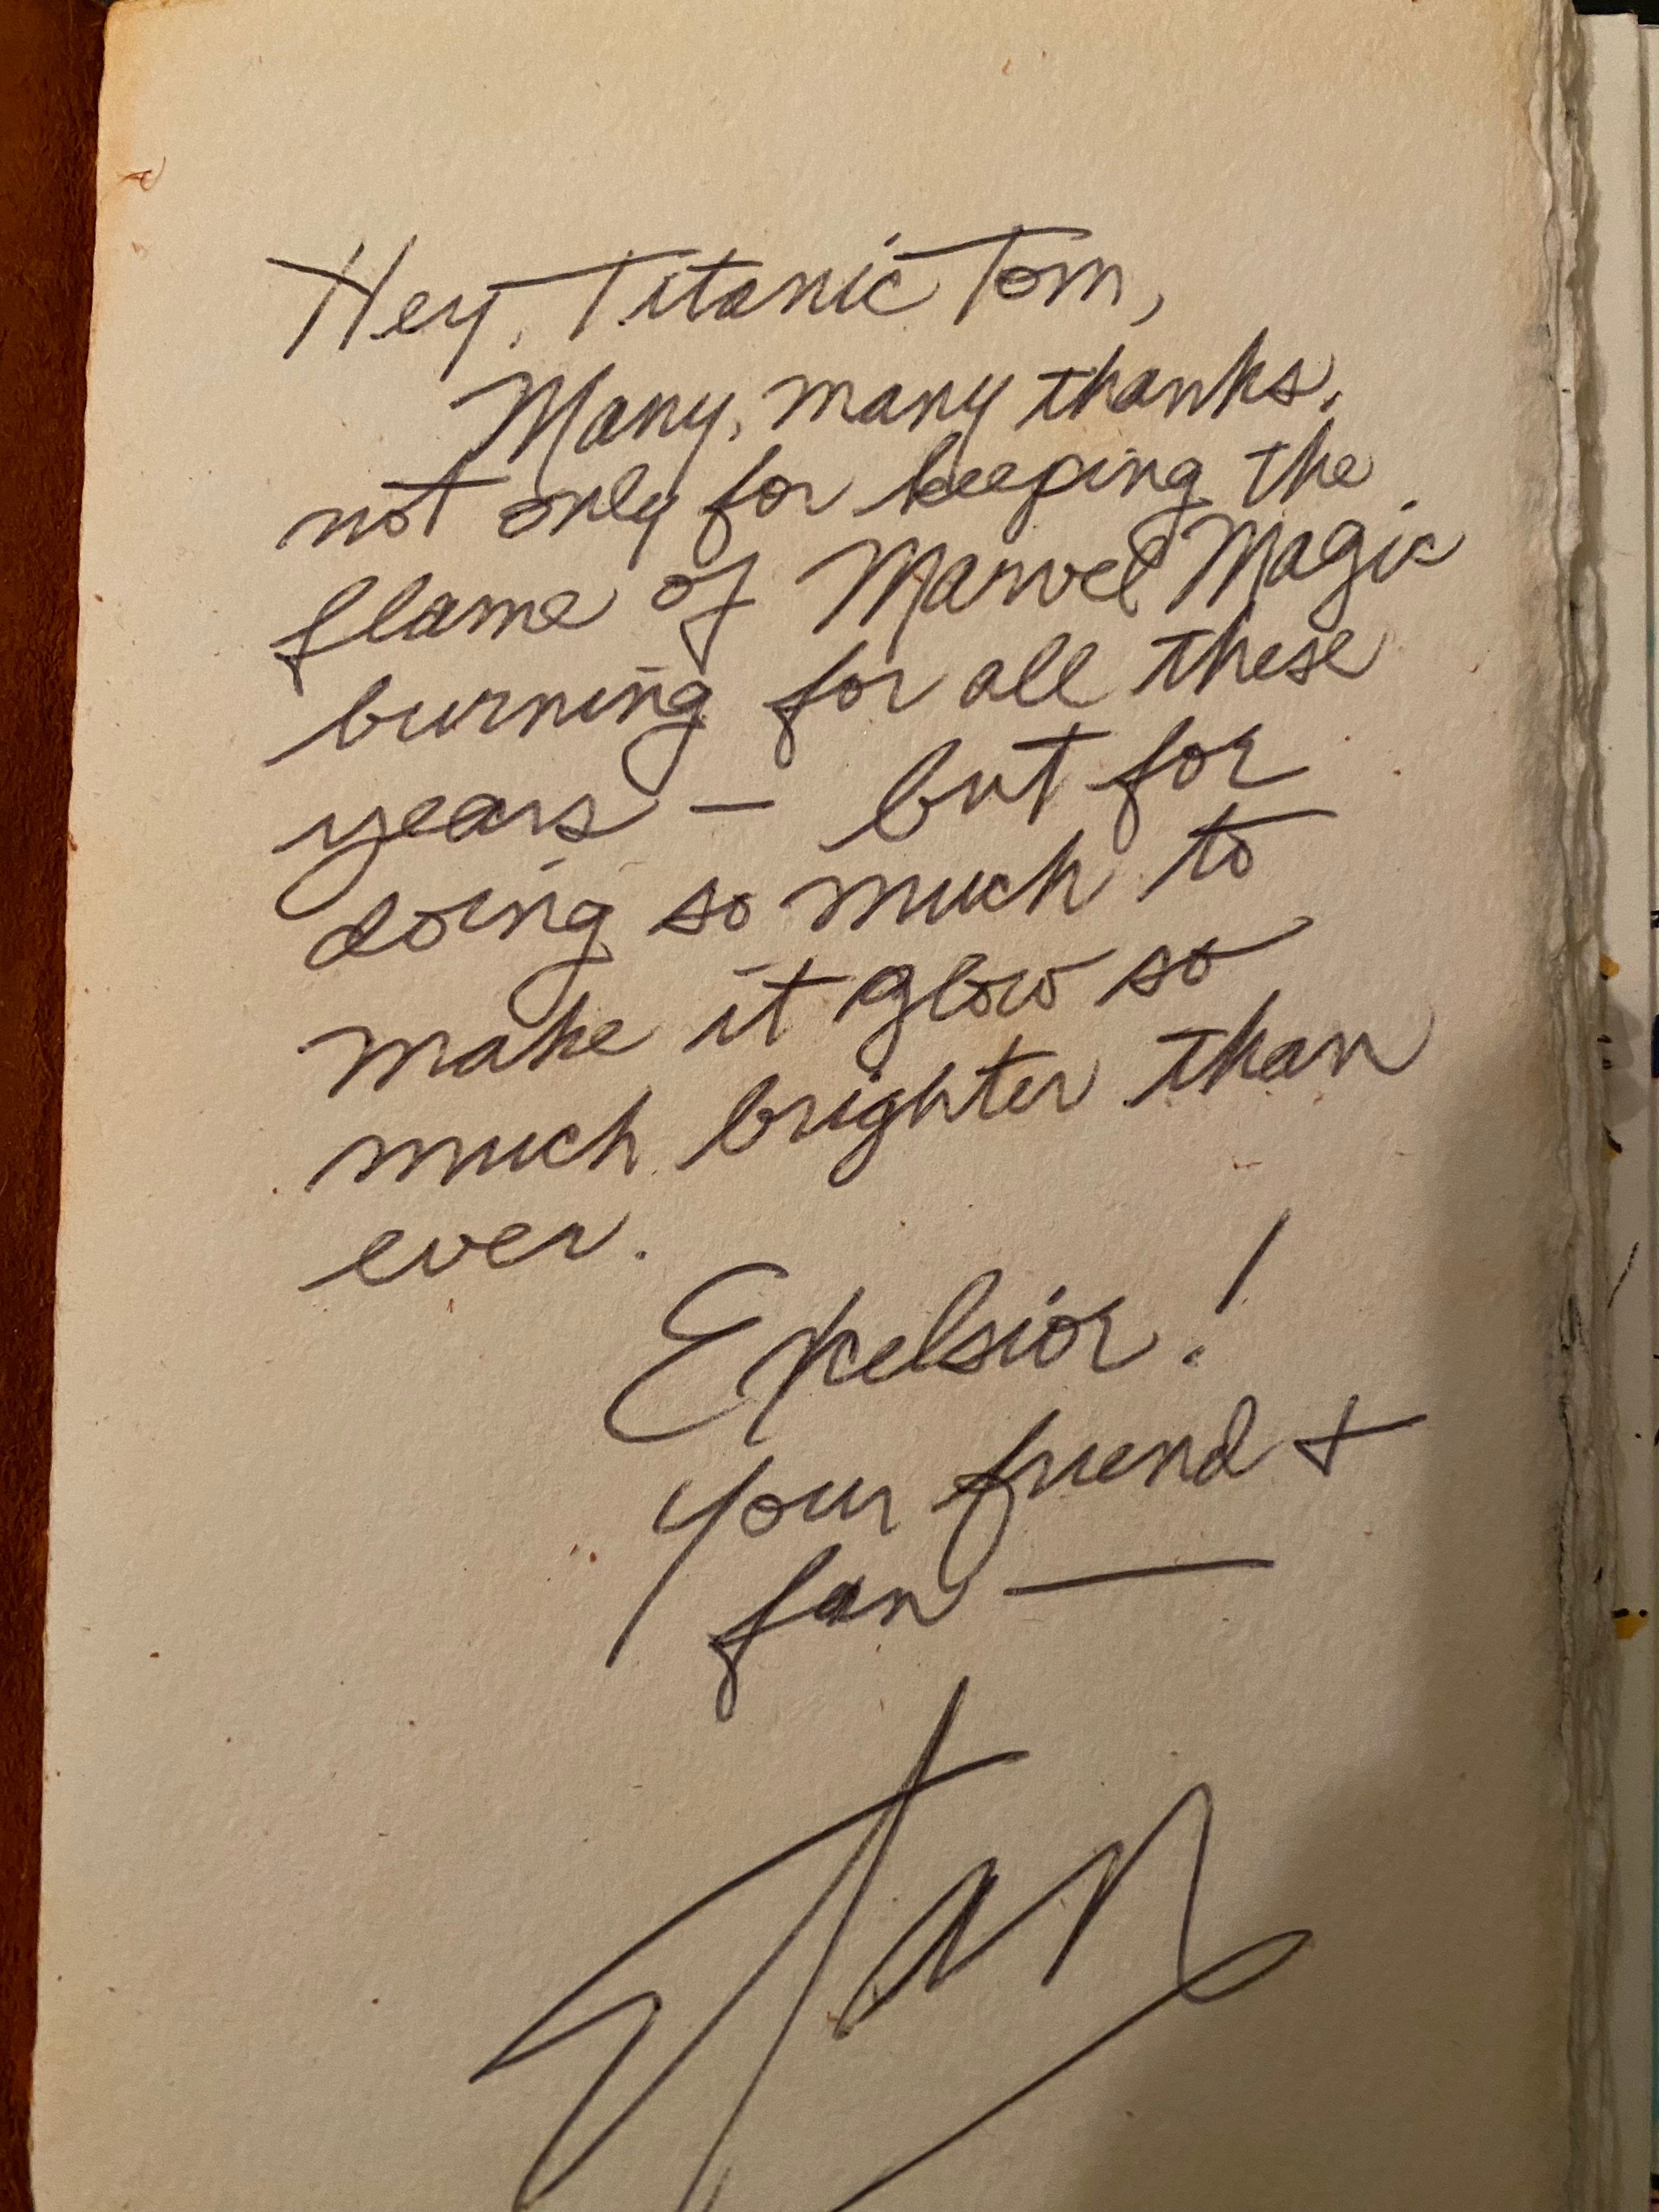 Hey, Titanic Tom,
Many, many thanks,
not only for keeping the
flame of Marvel Magic
burning for all these
years — but for
doing so much to
make it glow so
much brighter than
ever.
Excelsior!
Your friend +
fan —
Stan